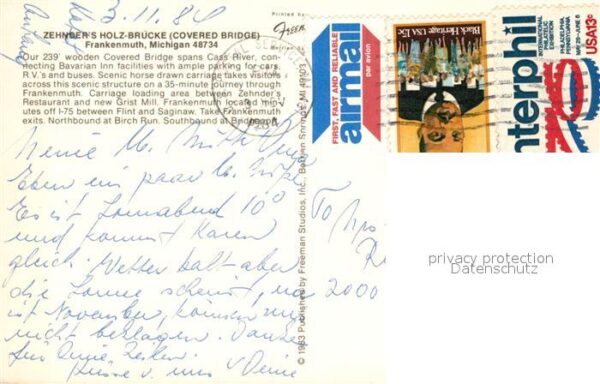 3.11.84
ZEHNDER'S HOLZ-BRÜCKE (COVERED BRIDGE)
Frankenmuth, Michigan 48734
Our 239' wooden Covered Bridge spans Cass River, con-
necting Bavarian Inn facilities with ample parking for cars,
R.V.'s and buses. Scenic horse drawn carriage takes visitors
across this scenic structure on a 35-minute journey through
Frankenmuth. Carriage loading area between Zehnder's
Restaurant and new Grist Mill. Frankenmuth located minutes
utes off I-75 between Flint and Saginaw. Take Frankenmuth
exits. Northbound at Birch Run. Southbound at Bridgeport
Meine
Eben ein paar
Es ist Sonnabend 10⁰⁰
und kommt Karen
gleich. Wetter kalt aber
die Sonne scheint, na
ist November, können
nicht beklagen. Danke
für Deine Zeilen.
Küsse v. uns Deine
Printed by
Freeman
© 1983 Freeman Studios, Inc., Berrien Springs, MI 49103
To
2000
FIRST, FAST AND RELIABLE
airmail
par avion
Black Heritage USA 15c
interphil
76
INTERNATIONAL
PHILATELIC
EXHIBITION
PHILADELPHIA
PENNSYLVANIA
MAY 29-JUNE 6
USA 13c
privacy protection
Datenschutz